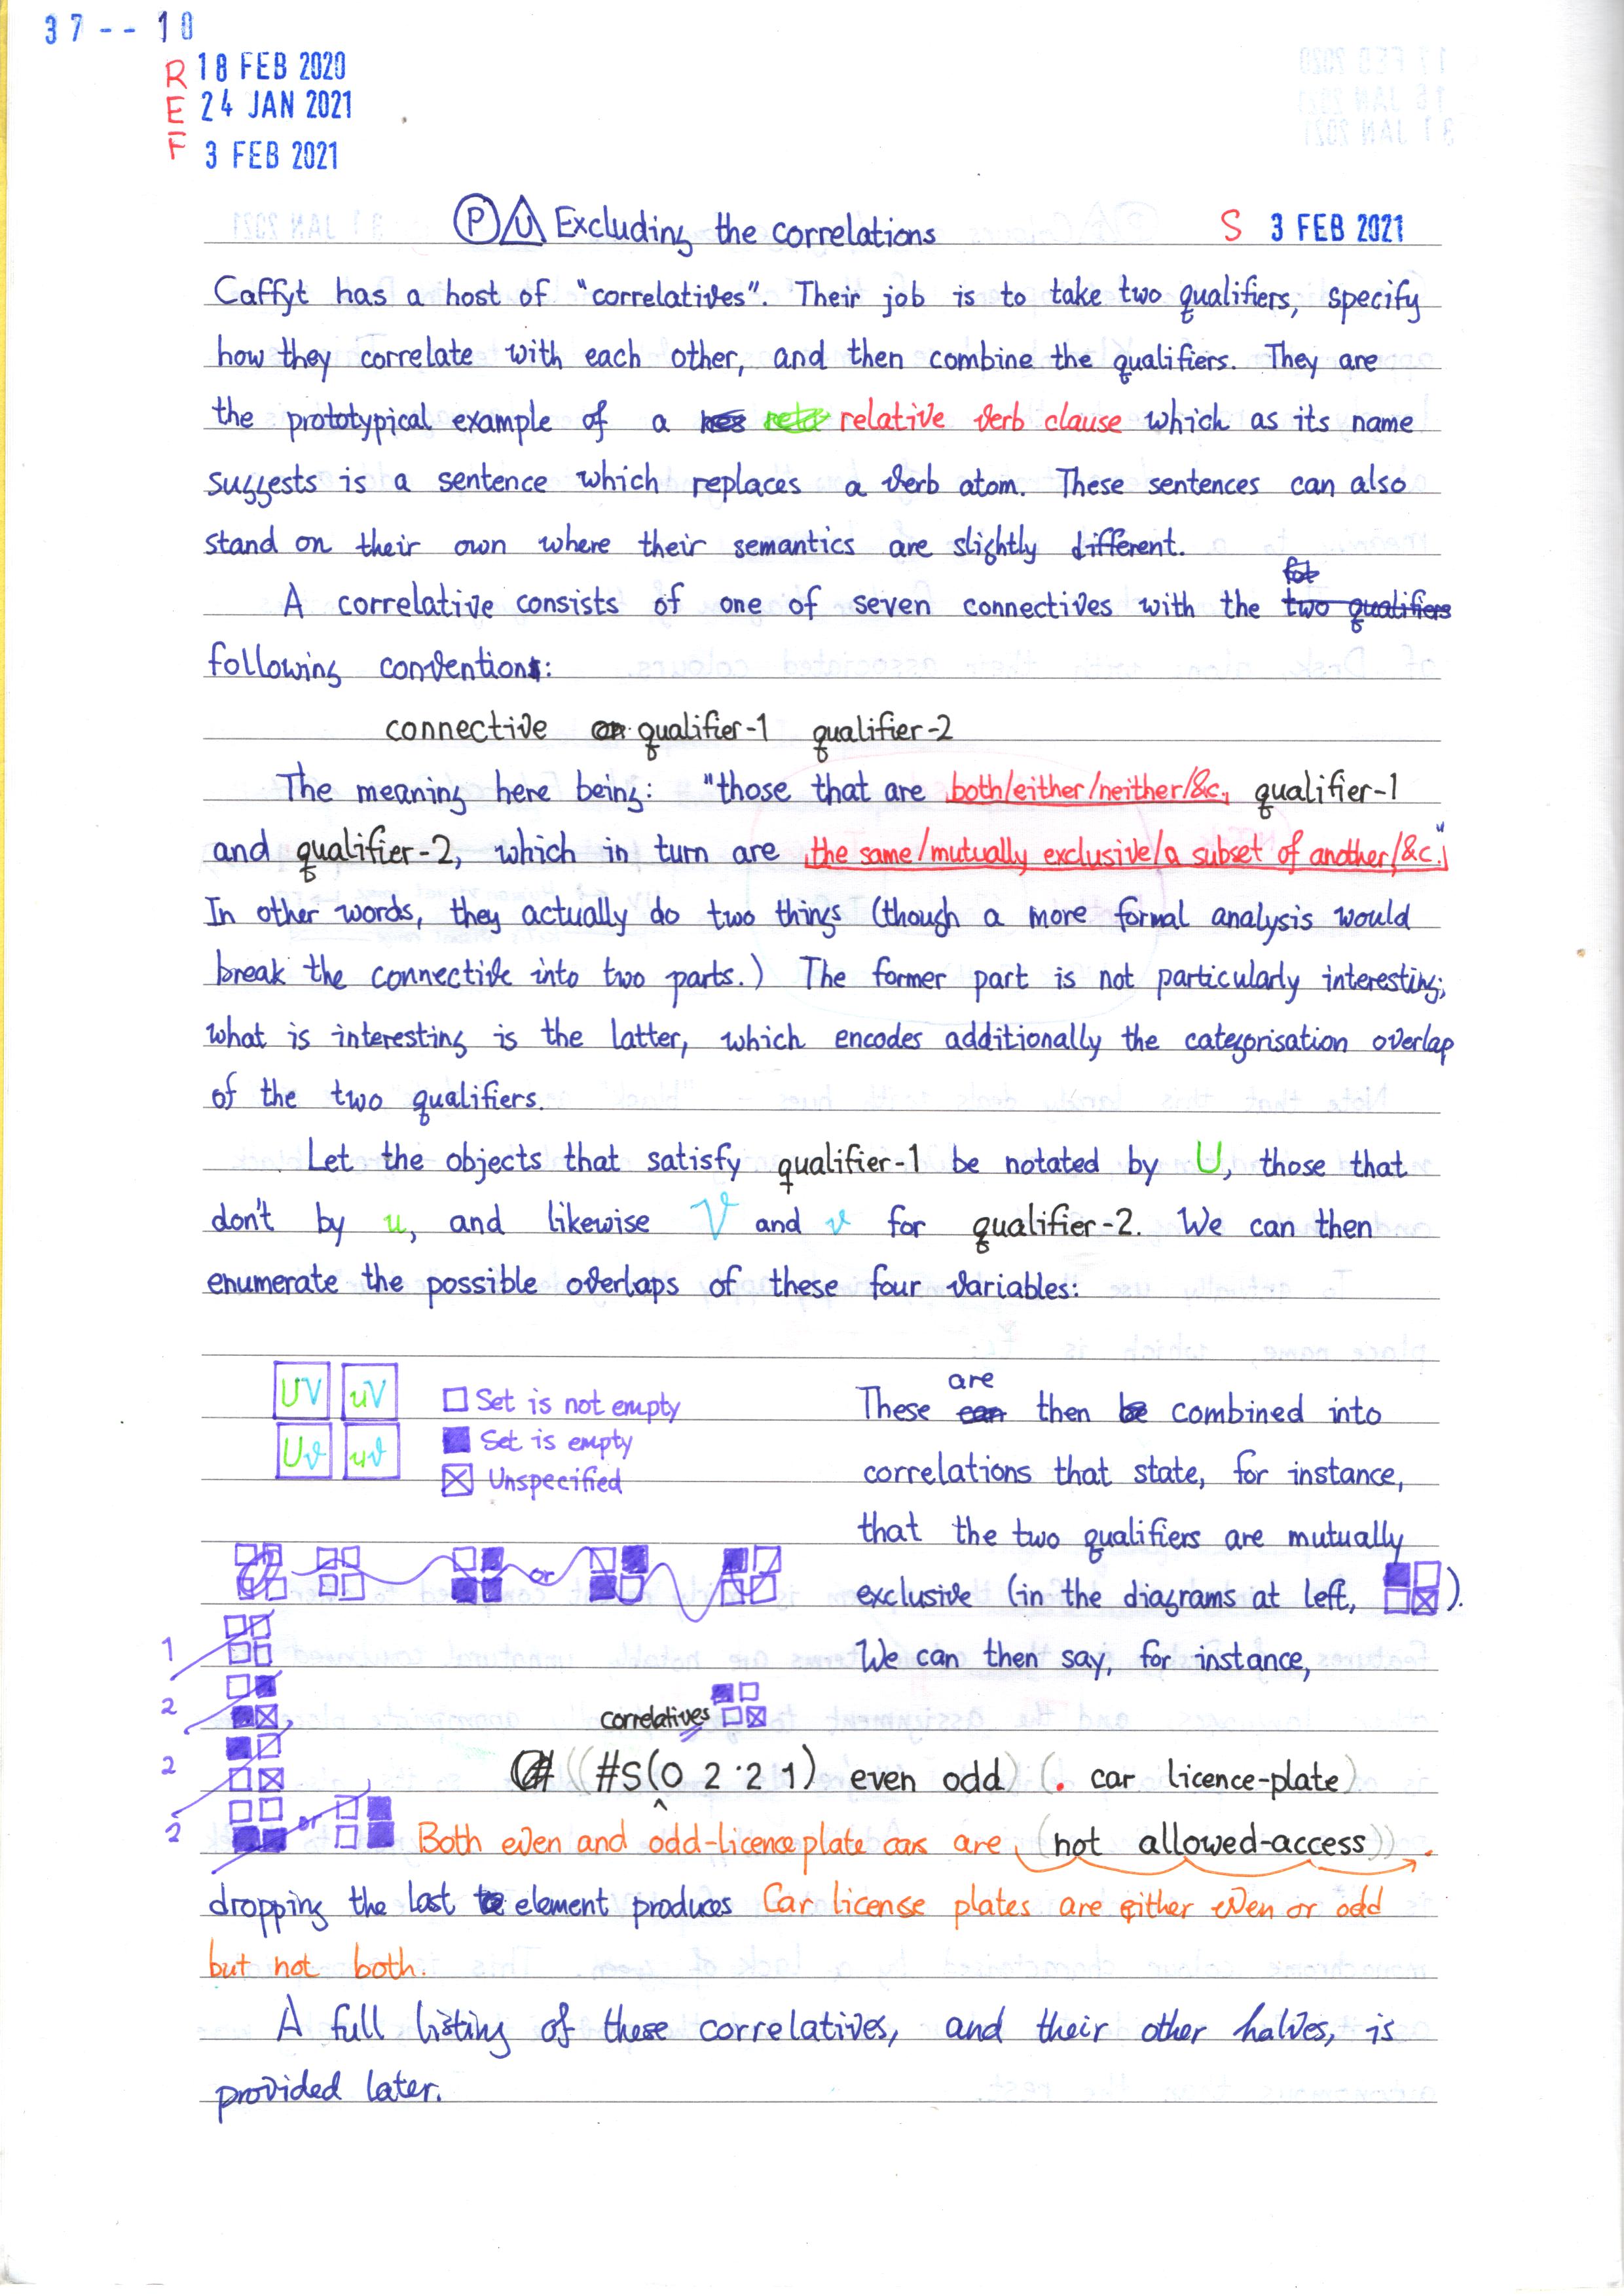 37--10
R 18 FEB 2020
E 24 JAN 2021
F 3 FEB 2021
P U Excluding the correlations S 3 FEB 2021
Caffyt has a host of "correlatives". Their job is to take two qualifiers, specify
how they correlate with each other, and then combine the qualifiers. They are
the prototypical example of a relative verb clause which as its name
suggests is a sentence which replaces a verb atom. These sentences can also
stand on their own where their semantics are slightly different.
A correlative consists of one of seven connectives with the two qualifiers
following convention:
connective qualifier-1 qualifier-2
The meaning here being: "those that are both/either/neither/&c. qualifier-1
and qualifier-2, which in turn are the same/mutually exclusive/a subset of another/&c."
In other words, they actually do two things (though a more formal analysis would
break the connective into two parts.) The former part is not particularly interesting;
what is interesting is the latter, which encodes additionally the categorisation overlap
of the two qualifiers.
Let the objects that satisfy qualifier-1 be notated by U, those that
don't by u, and likewise V and v for qualifier-2. We can then
enumerate the possible overlaps of these four variables:
UV uV
Uv uv
Set is not empty
Set is empty
Unspecified
These are can then be combined into
correlations that state, for instance,
that the two qualifiers are mutually
exclusive (in the diagrams at left, ).
We can then say, for instance,
or
1
2
2
2 or
correlatives
((#S(0 2 2 1) even odd) (. car licence-plate)
Both even and odd-licenceplate cars are (not allowed-access)) .
dropping the last element produces Car license plates are either even or odd
but not both.
A full listing of these correlatives, and their other halves, is
provided later.